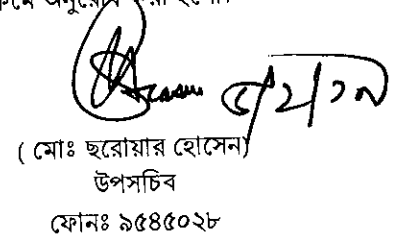 অনুরোধ করা হলো।
( মোঃ ছরোয়ার হোসেন)
উপসচিব
ফোনঃ ৯৫৪৫০২৮